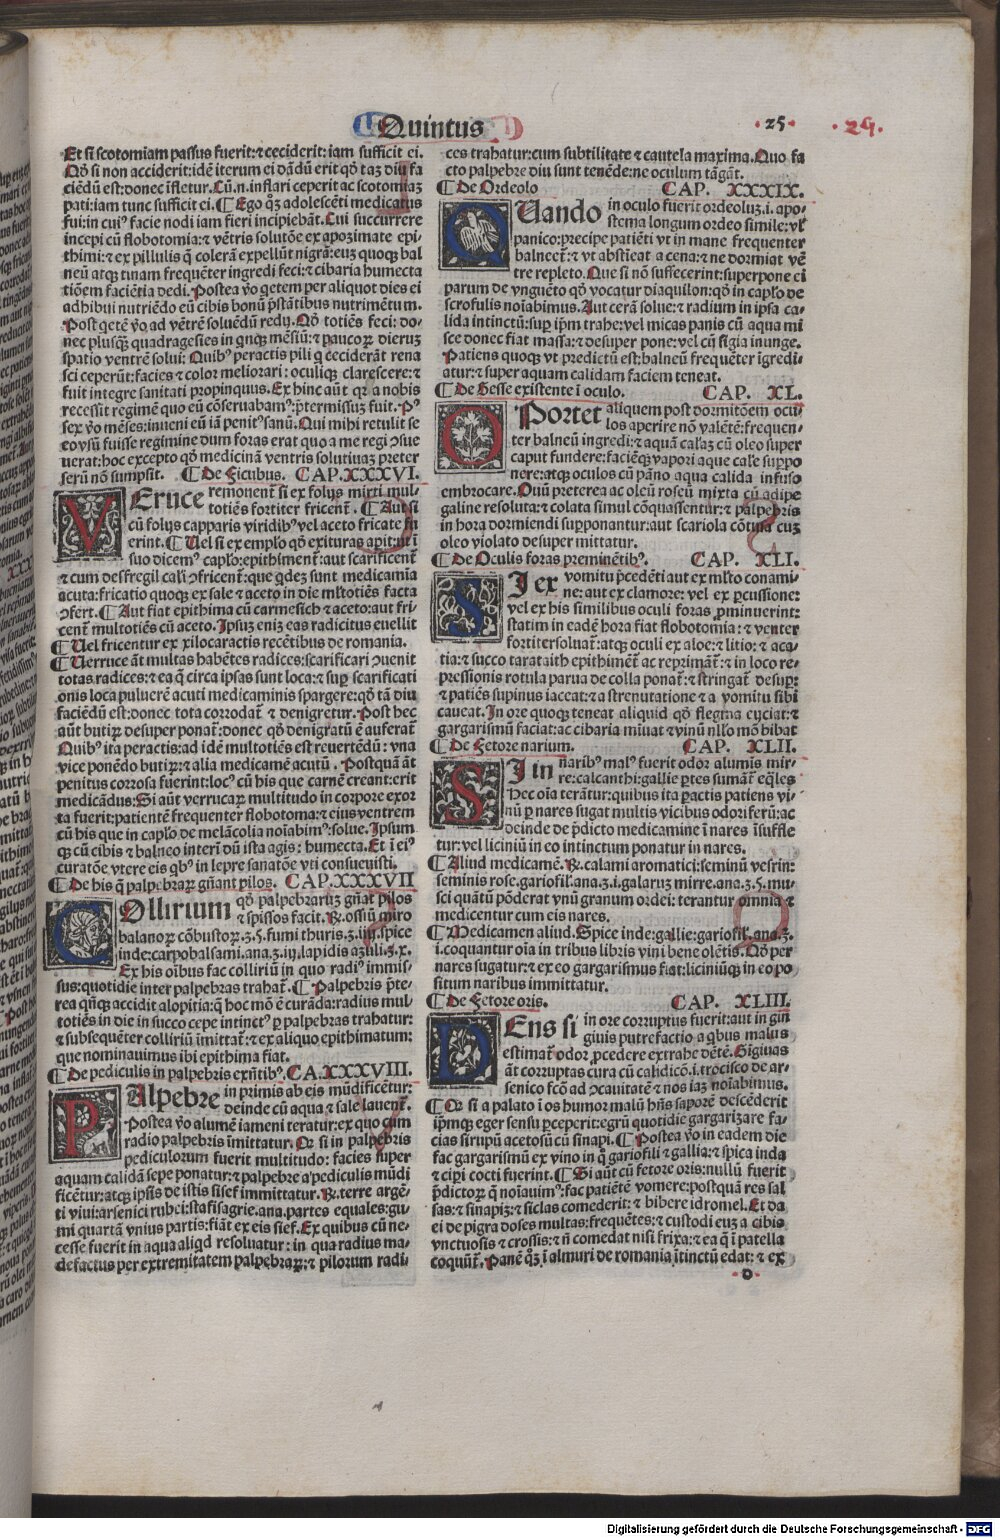 Quintus
25
Et si scotomiam passus fuerit: ⁊ ceciderit: iam sufficit ei.
Qđ si non acciderit: idē iterum ei dādū erit qđ tā3 diu fa
ciēdū est: donec īfletur. Cū.n. inflari ceperit ac scotomia3
pati: iam tunc sufficit ei. ¶ Ego q3 adolescēti medicatus
fui: in cui⁹ facie nodi iam fieri incipiebāt. Cui succurrere
incepi cū flobotomia: ⁊ vētris solutōe ex apozimate epi-
thimi: ⁊ ex pillulis q̄ colerā expellūt nigrā: eu3 quoq3 bal
neū atq3 tinam frequēter ingredi feci: ⁊ cibaria humecta
tiōem faciētia dedi. Postea v̊o getem per aliquot dies ei
adhibui nutriēdo eū cibis bonū p̄stātibus nutrimētum.
Post getē v̊o ad vētrē soluēdū redij. Qđ totiēs feci: do-
nec plusq̄3 quadragesies in qnq3 mēsiū: ⁊ paucoꝝ dieru3
spatio ventrē solui: Quib⁹ peractis pili q̄ ceciderāt rena
sci ceperūt: facies ⁊ color meliorari: oculiq3 clarescere: ⁊
fuit integre sanitati propinquus. Ex hinc aūt qꝛ a nobis
recessit regimē quo eū cōseruabam⁹: p̄termissu3 fuit. P⁹
sex v̊o mēses: inueni eū iā penit⁹ sanū. Qui mihi retulit se
eo vsū fuisse regimine dum foras erat quo a me regi ↄsue
uerat: hoc excepto qđ medicinā ventris solutiua3 preter
serū nō sumpsit. ¶ De Ficubus. CAP. XXXVI.
VEruce remouent̄ si ex folijs mirti mul-
totiēs fortiter fricent̄. ¶ Aut si
cū folijs capparis viridib⁹ vel aceto fricate fu
erint. ¶ Uel si ex emplo qđ exituras apit: ut ī
suo dicem⁹ caplo: epithiment̄: aut scarificent̄
⁊ cum desfregil cali ↄfricent̄: que qde3 sunt medicamīa
acuta: fricatio quoq3 ex sale ⁊ aceto in die mltotiēs facta
ↄfert. ¶ Aut fiat epithima cū carmesich ⁊ aceto: aut fri-
cent̄ multotiēs cū aceto. Ipsu3 eni3 eas radicitus euellit
¶ Uel fricentur ex xilocaractis recētibus de romania.
¶ Uerruce āt multas habētes radices: scarificari ↄuenit
totas radices: ⁊ ea q̄ circa ipsas sunt loca: ⁊ sup̄ scarificati
onis loca puluerē acuti medicaminis spargere: qđ tā diu
faciēdū est: donec tota corrodat̄ ⁊ denigretur. Post hec
aūt butiꝝ desuper ponat̄: donec qđ denigratū ē auferat̄
Quib⁹ ita peractis: ad idē multotiēs est reuertēdū: vna
vice ponēdo butiꝝ: ⁊ alia medicamē acutū. Postquā āt
penitus corrosa fuerint: loc⁹ cū his que carnē creant: erit
medicādus: Si aūt verrucaꝝ multitudo in corpore exor
ta fuerit: patientē frequenter flobotoma: ⁊ eius ventrem
cū his que in caplo de melācolia noīabim⁹: solue. Ipsum
q3 cū cibis ⁊ balneo interī dū ista agis: humecta. Et ī ei⁹
curatōe vtere eis qb⁹ in lepre sanatōe vti consueuisti.
¶ De his q̄ palpebraꝝ gn̄ant pilos. CAP. XXXVII
COllirium qđ palpebraru3 gn̄at pilos
⁊ spissos facit. ℞. ossiū miro
balanoꝝ cōbustoꝝ.ʒ.5. fumi thuris.ʒ.iiij. spice
inde: carpobalsami.ana.ʒ.iij. lapidis a3uli.ʒ.x.
Ex his oībus fac colliriū in quo radi⁹ immis-
sus: quotidie inter palpebras trahat̄. ¶ Palpebris p̄te-
rea qn̄q3 accidit alopitia: q̄ hoc mō ē curāda: radius mul
totiēs in die in succo cepe intinct⁹ ꝑ palpebras trahatur:
⁊ subsequēter colliriū īmittat̄: ⁊ ex aliquo epithimatum:
que nominauimus ibi epithima fiat.
¶ De pediculis in palpebris exn̄tib⁹. CA. XXXVIII.
PAlpebre in primis ab eis mūdificētur:
deinde cū aqua ⁊ sale lauent̄.
Postea v̊o alumē iameni teratur: ex quo cum
radio palpebris īmittatur. Qꝛ si in palpebris
pediculorum fuerit multitudo: facies super
aquam calidā sepe ponatur: ⁊ palpebre a pediculis mūdi
ficētur: atq3 ipsis de istis sisef immittatur. ℞. terre argē-
ti viui: arsenici rubei: stafisagrie.ana. partes equales: gu-
mi quartā vnius partis: fiāt ex eis sief. Ex quibus cū ne-
cesse fuerit in aqua aliqd resoluatur: in qua radius ma-
defactus per extremitatem palpebraꝝ: ⁊ pilorum radi-
ces trahatur: cum subtilitate ⁊ cautela maxima. Quo fa
cto palpebre diu sunt tenēde: ne oculum tāgāt.
¶ De Ordeolo CAP. XXXIX.
QUando in oculo fuerit ordeolu3.i. apo-
stema longum ordeo simile: vl̓
panico: precipe patiēti vt in mane frequenter
balneet̄: ⁊ vt abstīeat a cena: ⁊ ne dormiat vē
tre repleto. Que si nō suffecerint: superpone ei
parum de vnguēto qđ vocatur diaquilon: qđ in caplo de
scrofulis noīabimus. Aut cerā solue: ⁊ radium in ipsa ca-
lida intinctū: sup̄ ip̄m trahe: vel micas panis cū aqua mi
sce donec fiat massa: ⁊ desuper pone: vel cū sigia inunge.
Patiens quoq3 vt predictū est: balneū frequēter īgredi-
atur: ⁊ super aquam calidam faciem teneat.
¶ De Gesse existente ī oculo. CAP. XL.
OPortet aliquem post dormitōem ocu
los aperire nō valētē: frequen-
ter balneū ingredi: ⁊ aquā cala3 cū oleo super
caput fundere: faciēq3 vapori aque cale suppo
nere: atq3 oculos cū pāno aqua calida infuso
embrocare. Ouū preterea ac oleū roseū mixta cū adipe
galine resoluta: ⁊ colata simul cōquassentur: ⁊ palpebris
in hora dormiendi supponantur: aut scariola cōtusa cu3
oleo violato desuper mittatur.
¶ De Oculis foras preminētib⁹. CAP. XLI.
SI ex vomitu p̄cedēti aut ex mlto conami-
ne: aut ex clamore: vel ex ꝑcussione:
vel ex his similibus oculi foras ꝓminuerint:
statim in eadē hora fiat flobotomia: ⁊ venter
fortiter soluat̄: atq3 oculi ex aloe: ⁊ litio: ⁊ aca-
tia: ⁊ succo tarataith epithimēt̄ ac reprimāt̄: ⁊ in loco re-
pressionis rotula parua de colla ponat̄: ⁊ stringat̄ desup̄:
⁊ patiēs supinus iaceat: ⁊ a strenutatione ⁊ a vomitu sibi
caueat. In ore quoq3 teneat aliquid qđ flegma eijciat: ⁊
gargarismū faciat: ac cibaria minuat ⁊ vinū nllo mō bibat
¶ De Fetore narium. CAP. XLII.
SI in narib⁹ mal⁹ fuerit odor alumīs mir-
re: calcanthi: gallie ꝑtes sumāt̄ eq̄les
hec oīa terātur: quibus ita ꝑactis patiens vi-
nū ꝑ nares sugat multis vicibus odoriferū: ac
deinde de p̄dicto medicamine ī nares īsuffle
tur: vel liciniū in eo intinctum ponatur in nares.
¶ Aliud medicamē. ℞. calami aromatici: seminū vesrin:
seminis rose. gariofil.ana.ʒ.i. galaru3 mirre.ana.ʒ.5. mu-
sci quātū pōderat vnū granum ordei: terantur omnia ⁊
medicentur cum eis nares.
¶ Medicamen aliud. Spice inde: gallie: gariofil.ana.ʒ.
i. coquantur oīa in tribus libris vini bene olētis. Qđ per
nares sugatur: ⁊ ex eo gargarismus fiat: liciniūq3 in eo po
situm naribus immittatur.
¶ De Fetore oris. CAP. XLIII.
DEns si in ore corruptus fuerit: aut in gin
giuis putrefactio a qbus malus
estimat̄ odor ꝓcedere extrahe dētē. Gigiuas
āt corruptas cura cū calidicō.i. trocisco de ar-
senico fcō ad ↄcauitatē ⁊ nos ia3 noīabimus.
¶ Qꝛ si a palato ī os humor malū hn̄s saporē descēderit
ip̄mq3 eger sensu ꝑceperit: egrū quotidie gargarizare fa-
cias sirupū acetosū cū sinapi. ¶ Postea v̊o in eadem die
fac gargarismū ex vino in q̄ gariofili ⁊ gallia: ⁊ spica inda
⁊ cipri cocti fuerint. ¶ Si aūt cū fetore oris: nullū fuerit
p̄dictoꝝ q̄ noīauim⁹: fac patiētē vomere: postquā res sal
sas: ⁊ sinapi3: ⁊ siclas comederit: ⁊ bibere idromel. Et da
ei de pigra doses multas: frequētes: ⁊ custodi eu3 a cibis
vnctuosis ⁊ crossis: ⁊ n̄ comedat nisi frixa: ⁊ ea q̄ ī patella
coquūt̄. Panē q̄3 ī almuri de romania ītinctū edat: ⁊ ex
o
Digitalisierung gefördert durch die Deutsche Forschungsgemeinschaft - DFG